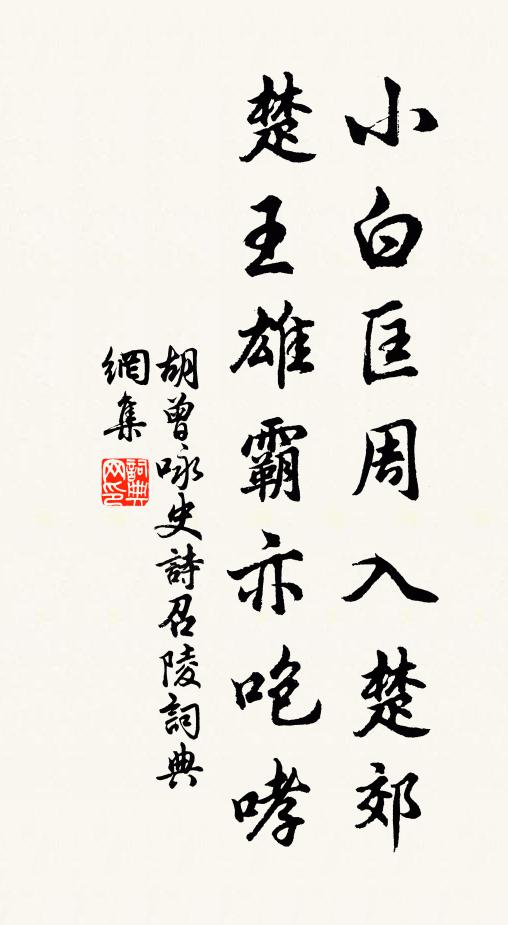 小白匡周入楚郊
楚王雄霸亦咆哮
胡曾咏史詩召陵詞典
網集
詞典
网印